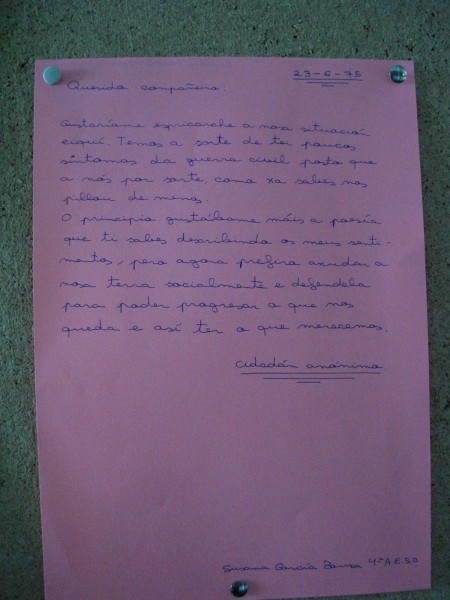 23-6-75
Querida compañera:
Gustaríame espricarche a nosa situación
eiquí. Temos a sorte de ter poucos
síntomas da guerra civil posto que
a nós por sorte, como xa sabes nos
pillou de menos.
O principio gustábame máis a poesía
que ti sabes describindo os meus senti-
mentos, pero agora prefiro axudar a
nosa terra socialmente e defendela
para poder progresar o que nos
queda e así ter o que merecemos.
Cidadán anónimo
Susana García 4º A E.S.O